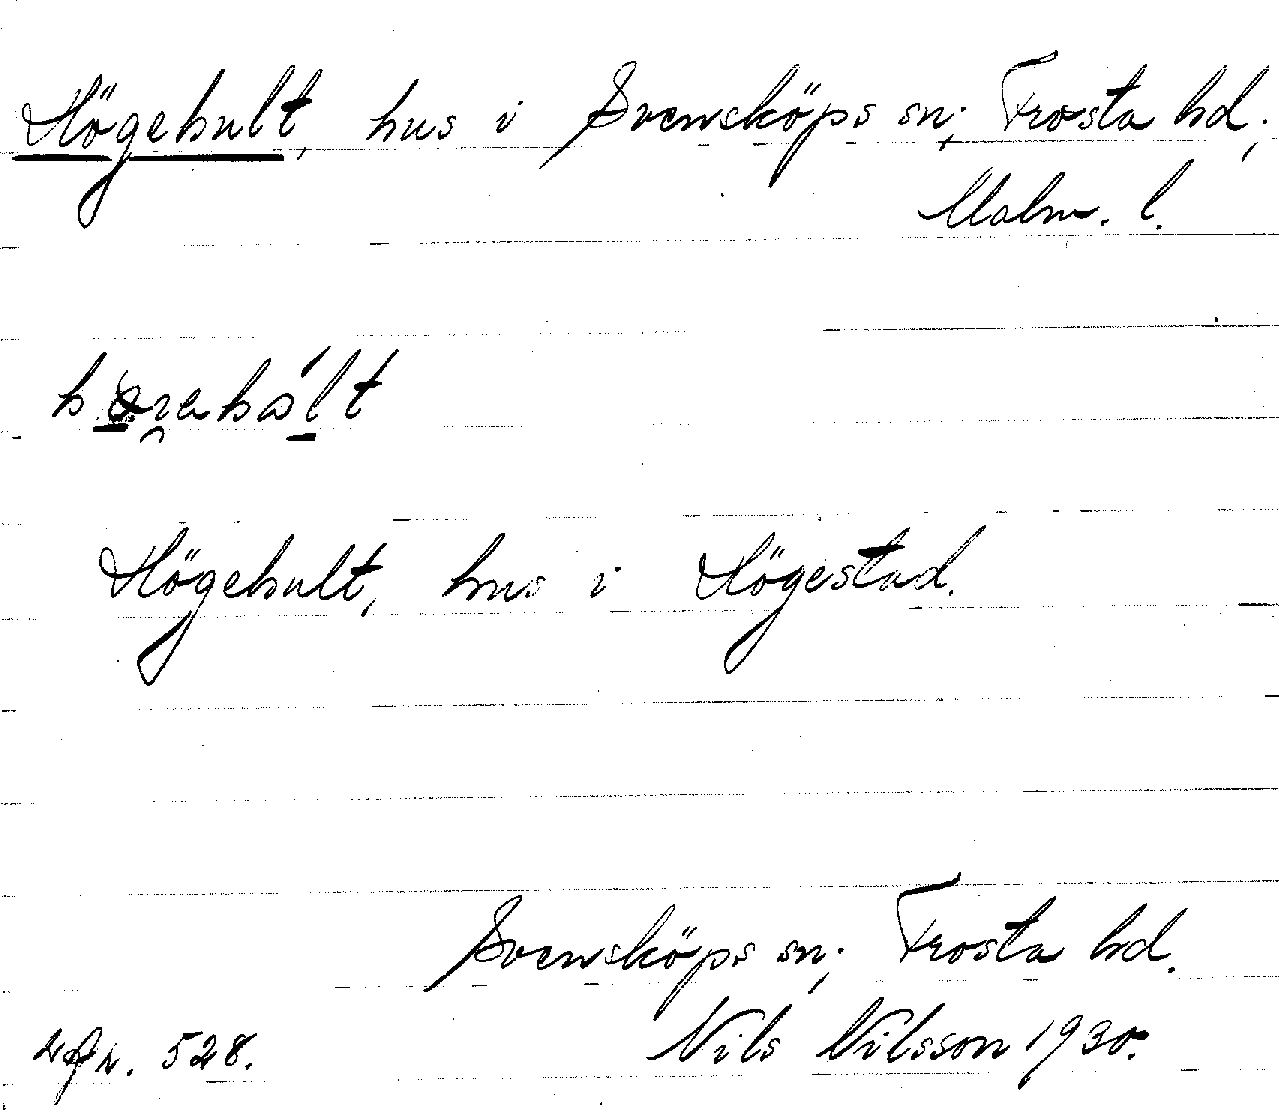 Högehult, hus i Svensköps sn; Frosta hd;
Malm. l.
Högehult, hus i Högestad.
Svensköps sn; Frosta hd.
528. Nils Nilsson 1930.